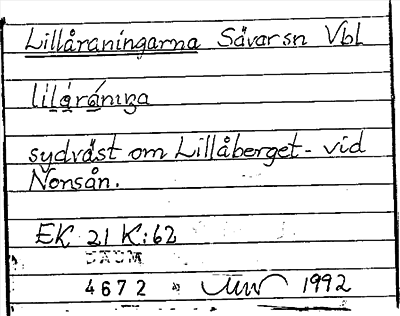 Lillåraningarna Sävar sn Vbl
sydväst om Lillåberget - vid
Nonsån.
EK 21 K:62
DAUM
4672 1992